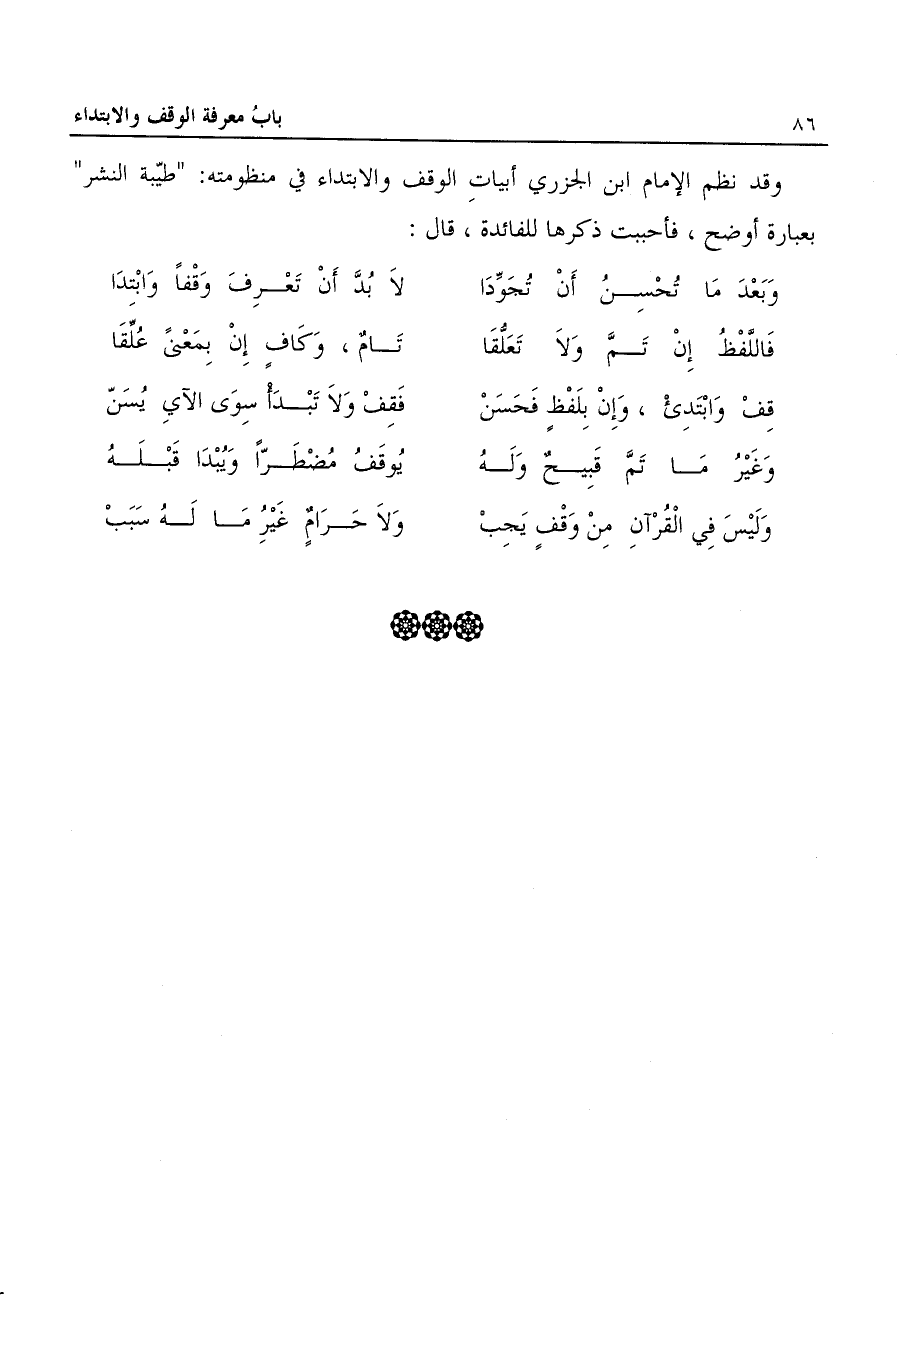 ٨٦ بابُ معرفة الوقف والابتداء
وقد نظم الإمام ابن الجزري أبياتِ الوقف والابتداء في منظومته: "طيّبة النشر"
بعبارة أوضح ، فأحببت ذكرها للفائدة ، قال :
وَبَعْدَ مَا تُحْسِنُ أَنْ تُجَوِّدَا لاَ بُدَّ أَنْ تَعْرِفَ وَقْفاً وَابْتِدَا
فَاللَّفْظُ إِنْ تَمَّ وَلاَ تَعَلُّقَا تَامٌ ، وَكَافٍ إِنْ بِمَعْنىً عُلِّقَا
قِفْ وَابْتَدِئْ ، وَإِنْ بِلَفْظٍ فَحَسَنْ فَقِفْ وَلاَ تَبْدَأْ سِوَى الآيِ يُسَنّ
وَغَيْرُ مَا تَمَّ قَبِيحٌ وَلَهُ يُوقَفُ مُضْطَرّاً وَيُبْدَا قَبْلَهُ
وَلَيْسَ فِي الْقُرْآنِ مِنْ وَقْفٍ يَجِبْ وَلاَ حَرَامٍ غَيْرِ مَا لَهُ سَبَبْ